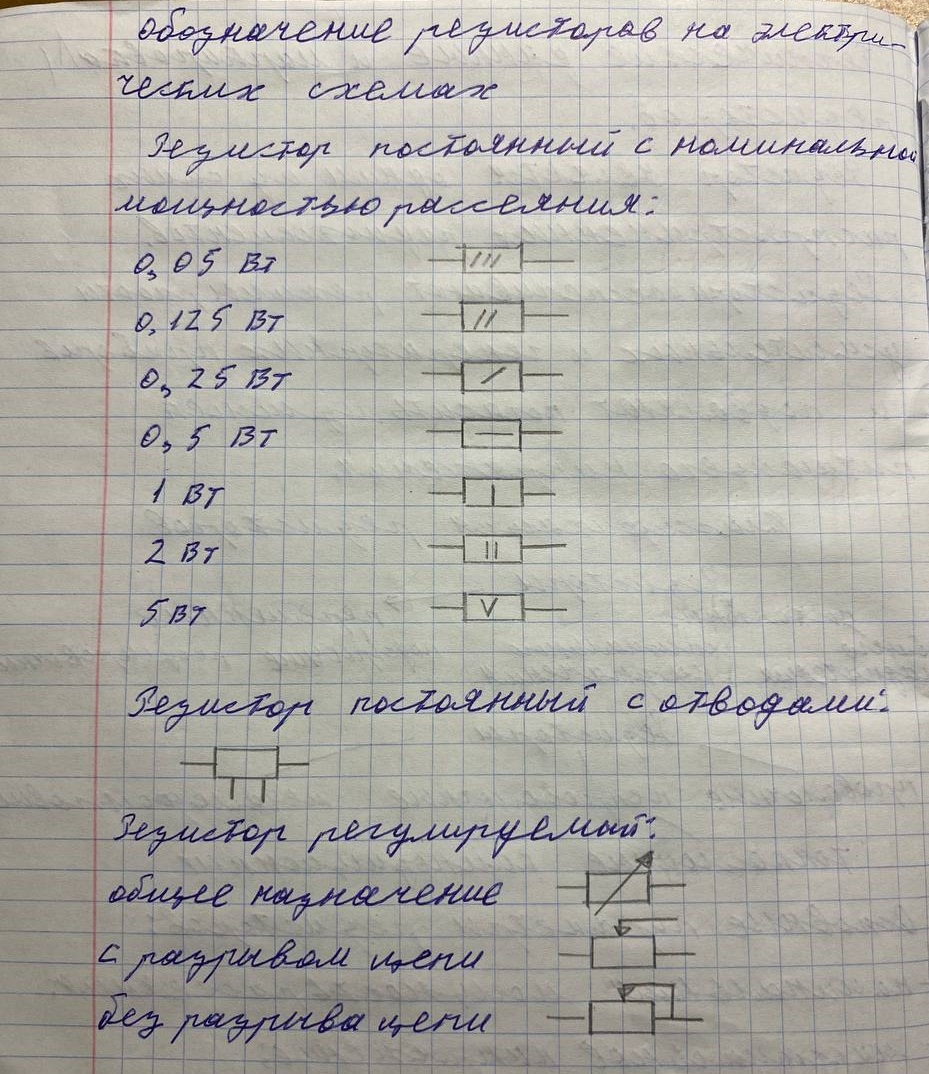 обозначение резисторов на электри-
ческих схемах
Резистор постоянный с номинальной
мощностью рассеяния:
0,05 Вт
0,125 Вт
0,25 Вт
0,5 Вт
1 Вт
2 Вт
5 Вт
V
Резистор постоянный с отводами:
Резистор регулируемый:
общее назначение
с разрывом цепи
без разрыва цепи